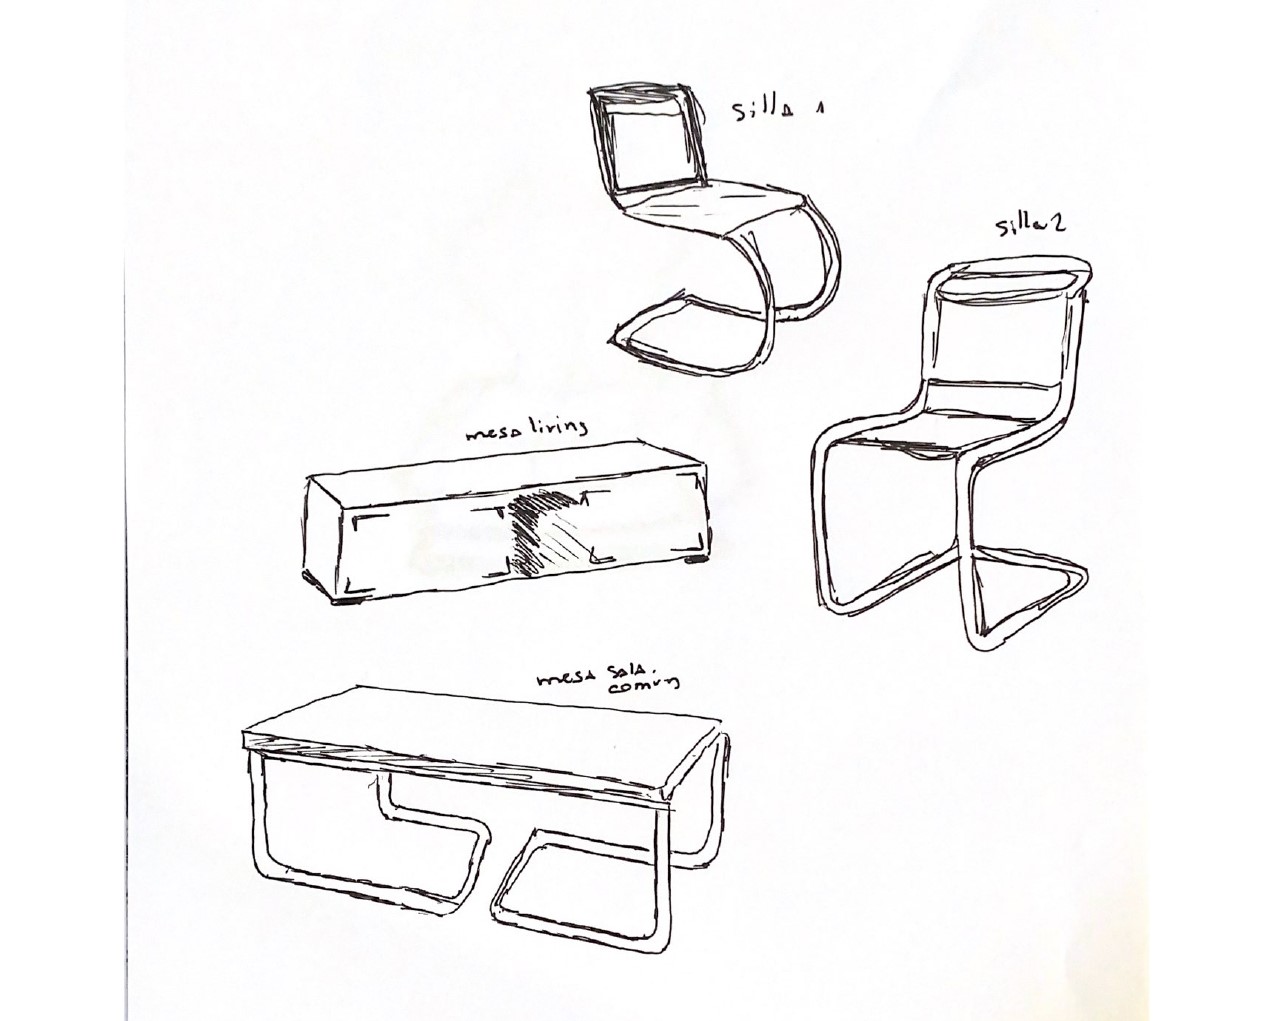 silla 1
silla 2
mesa living
mesa sala.
comun